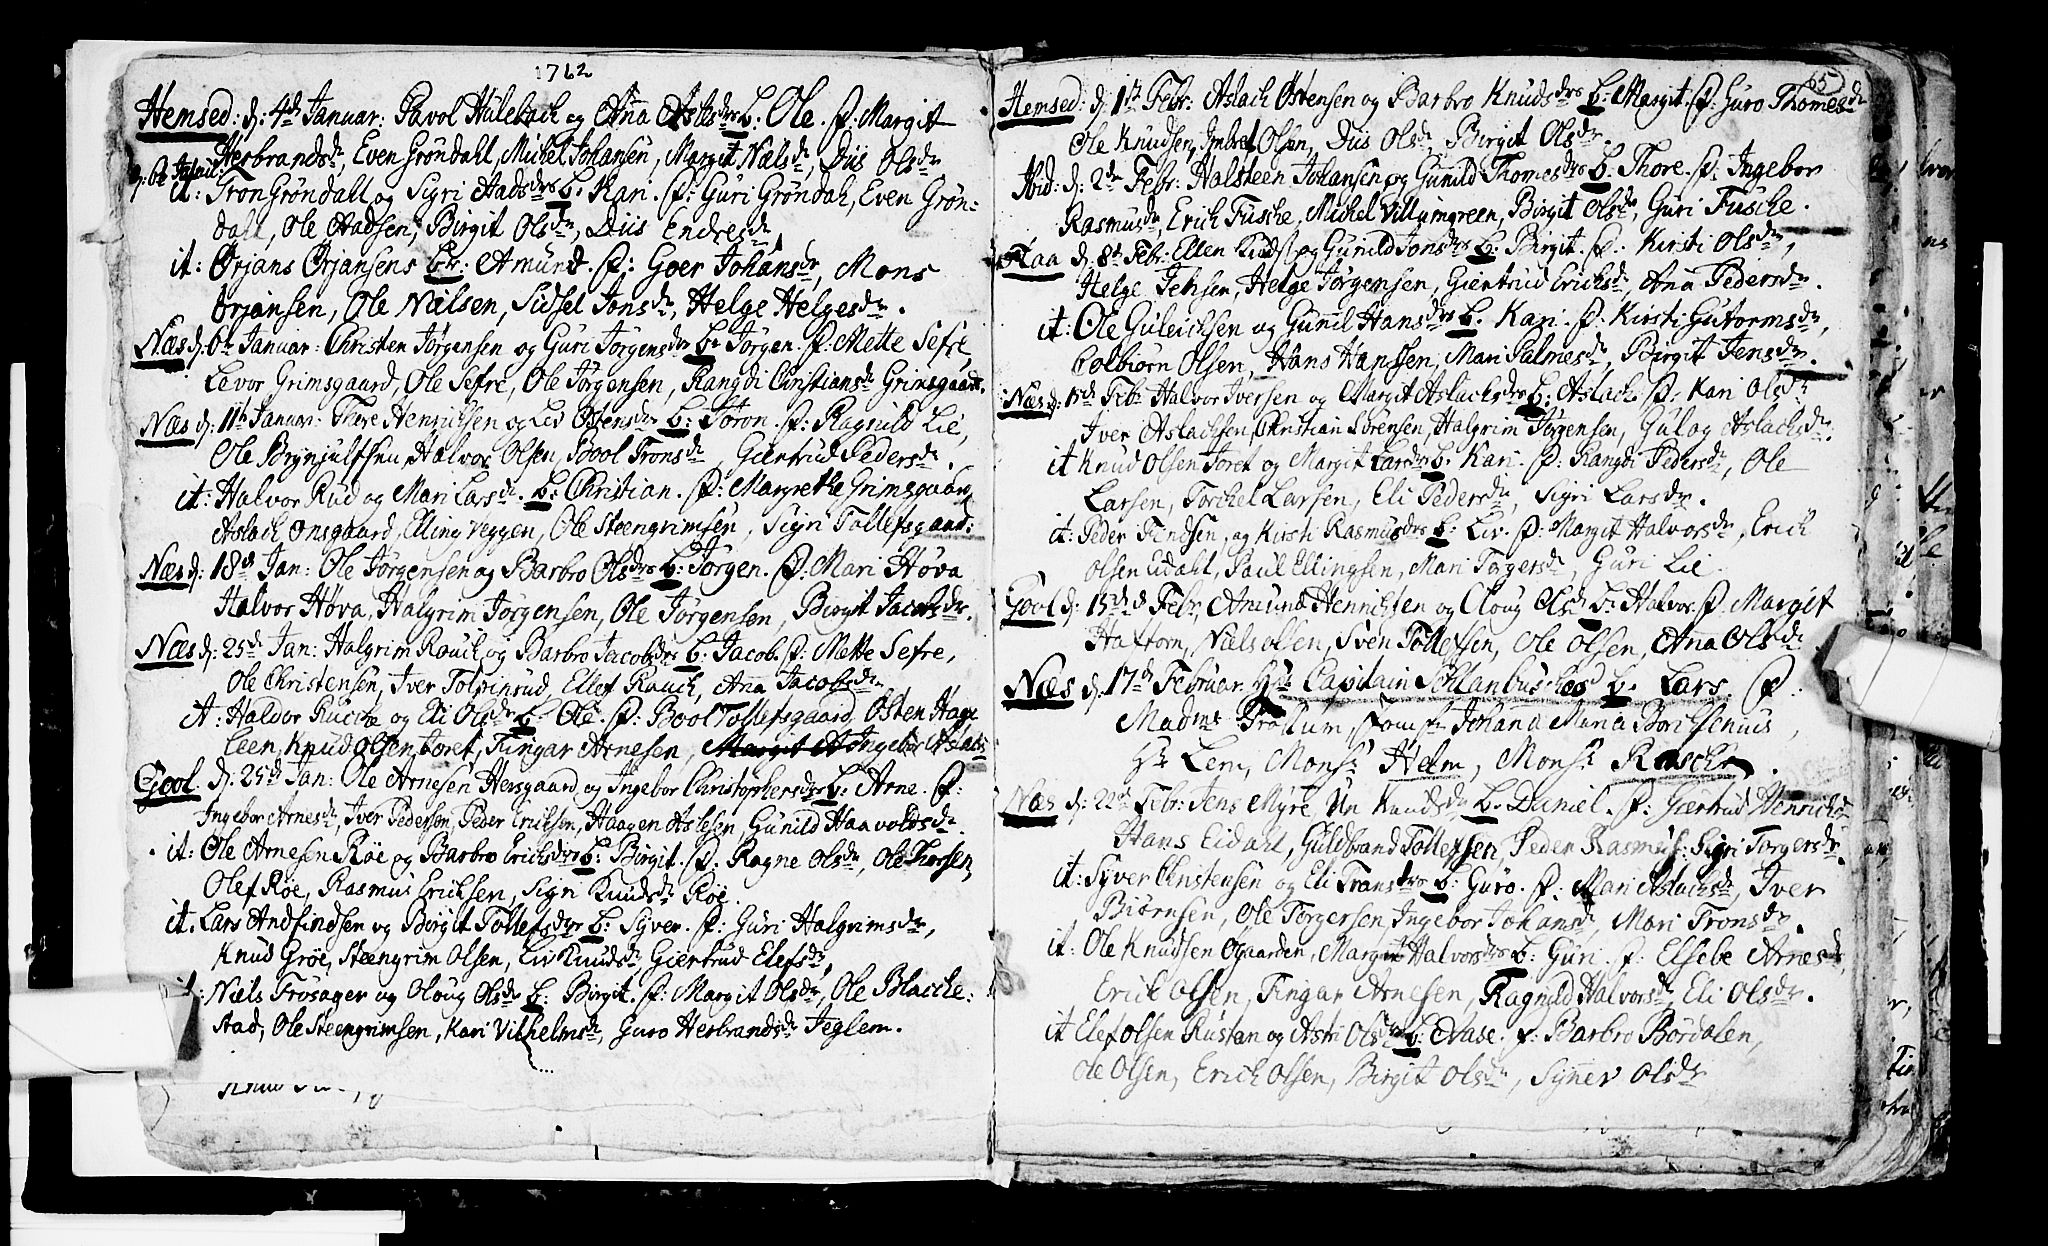 1762
Hemsed: d: 4de Januar: Pavol Hulebach og Anna Asledrs b: Ole. f: Margit
Herbrandsdr, Even Grøndahl, Michel Johansen, Margit Nielsdr, Diis Olsdr
d: 6te Januar:
it: Tron Grøndall og Sigri Aadsdrs b: Kari. f: Guri Grøndahl, Even Grøn-
dall, Ole Aadsen, Birgit Olsdr, Diis Endresdr
it: Ørjans Ørjansens br: Amund. f: Goer Johansdr, Mons
Ørjansen, Ole Nilsen, Sidsel Jonsdr, Helge Helgesdr.
Næs d: 6te Januar: Christen Jørgensen og Guri Jørgensdr br Jørgen. f: Mette Sefre,
Levor Grimsgaard, Ole Sefre, Ole Jørgensen, Rangdi Christiansdr Grimsgaard.
Næs d: 11te Januar: Thore Henrichsen og Liv Østensdr b: Joron. f: Ragnild Lie,
Ole Brynjulfsen, Halvor Olsen, Bool Tronsdr Giertrud Pedersdr.
it: Halvor Rud og Mari Larsdr. b: Christian. f: Margrethe Grimsgaard
Aslach Onsgaard, Elling Veggen, Ole Steengrimsen, Sigri Tollefsgaard:
Næs d: 18de Jan: Ole Jørgensen og Barbro Olsdrs b: Jørgen. f: Mari Høva
Halvor Høva, Halgrim Jørgensen, Ole Jørgensen, Birgit Jacobsdr.
Næs d: 25de Jan: Halgrim Rouch og Barbro Jacobsdrs b: Jacob. f: Mette Sefre,
Ole Christensen, Iver Tolpinrud, Ellef Rauch, Anna Jacobsdr
it: Haldor Rucche og Eli Olsdr b: Ole. f: Bool Tollefsgaard, Østen Hage
leen, Knud Olsen Toret, Fingar Arnesen, Ingebor Aslachsdr
Gool. d: 25de Jan: Ole Arnesen Hersgaard og Ingebor Christophersdr b: Arne. f:
Ingebor Arnesdr, Iver Pedersen, Peder Erichsen, Haagen Aslesen, Gunild Haavoldsdr.
it: Ole Arnesen Røe og Barbro Erichsdrs b: Birgit. f: Ragne Olsdr, Ole Thorsen,
Olef Røe, Rasmus Erichsen, Sigri Knudsdr Røe.
it. Lars Andfindsen og Birgit Tollefsdrs b: Syver. f: Guri Halgrimsdr,
Knud Grøe, Steengrim Olsen, Liv Knudsdr, Giertrud Elefsdr,
it: Niels Frøsager og Oloug Olsdr b: Birgit. f: Margit Olsdr, Ole Blacche:
stad, Ole Steengrimsen, Kari Vilhelmsdr, Guro Herbrandsdr Teglem.
65
Hemsed: d: 1ste Febr: Aslach Østensen og Barbro Knudsdrs b: Margit. f: Guro Thomesdr
Ole Knudsen, Embret Olsen, Diis Olsdr, Birgit Olsdr.
Ibid: d: 2den Febr: Halsteen Johansen og Gunild Thomesdrs b: Thore. f: Ingebor
Rasmusdr, Erich Fusche, Michel Villumgreen, Birgit Olsdr, Guri Fusche.
Flaa d. 8de Febr: Ellen og Gunild Jonsdr b: Birgit. f: Kirsti Olsdr,
Helge Jensen, Helge Jørgensen, Giertrud Erichsdr, Ana Pedersdr.
it: Ole Guleichsen og Gunil Hansdrs b. Kari. f: Kirsti Gutormsdr,
Colbiørn Olsen, Hans Hanssen, Mari Palmesdr, Birgit Jensdr.
Næs d: 15de Febr Halvor Iversen og Margit Aslachsdrs b: Aslach. f: Kari Olsdr
Iver Aslachsen, Christian Sørensen, Halgrim Jørgensen, Gulog Aslachsdr.
it Knud Olsen Toret og Margit Larsdrs b. Kari. f: Rangdi Pedersdr, Ole
Larsen, Torchel Larsen, Eli Pedersdr, Sigri Larsdr.
it: Peder Findsen, og Kirsti Rasmusdrs b: Liv. f: Margit Halvorsdr, Erich
Olsen Eidahl, Paul Ellingsen, Mari Torgersdr, Guri Lie.
Gool d: 15de Febr, Amund Henrichsen og Oloug Olsdr b: Halvor. f: Margit
Haftorn, Niels Olsen, Sven Tollefsen, Ole Olsen, Ana Olsdr.
Næs d: 17de Februar. Hr Capitain b. Lars. f:
Madme Trollum, Jomfr Johana Maria Borchsenius,
Hr Lem, Monsr Helm, Monsr Rasch.
Næs d: 22de Febr: Jens Myre, Un Knudsdr b. Daniel. f: Giertrud Henrichsdr
Hans Eidahl, Guldbrand Tollefsen, Peder Rasmus: Sigri Torgersdr.
it: Syver Christensen og Eli Transdrs b: Guro. f: Mari Aslachsdr, Iver
Biørnsen, Ole Torgersen, Ingebor Johansdr, Mari Tronsdr.
it: Ole Knudsen Ogaarden, Margit Halvorsdrs b: Guri. f: Elsebe Arnesdr,
Erich Olsen, Fingar Arnesen, Ragnild Halvorsdr, Eli Olsdr.
it Elef Olsen Rustan og Astri Olsdrs b: Aase. f: Barbro Bordalen,
Ole Olsen, Erich Olsen, Birgit Olsdr, Syner Olsdr